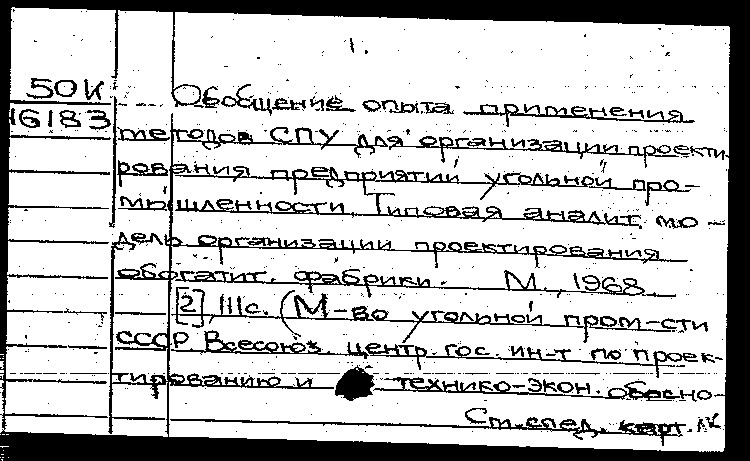 1.
50К Обобщение опыта применения
16183 методов СПУ для организации проекти
рования предприятий угольной про-
мышленности. Типовая аналит. мо-
дель организации проектирования
обогатит. фабрики. М., 1968.
[2], 111с. (М-во угольной пром-сти
СССР Всесоюз. центр. гос. ин-т по проек-
тированию и технико-экон. обосно-
См. след. карт.